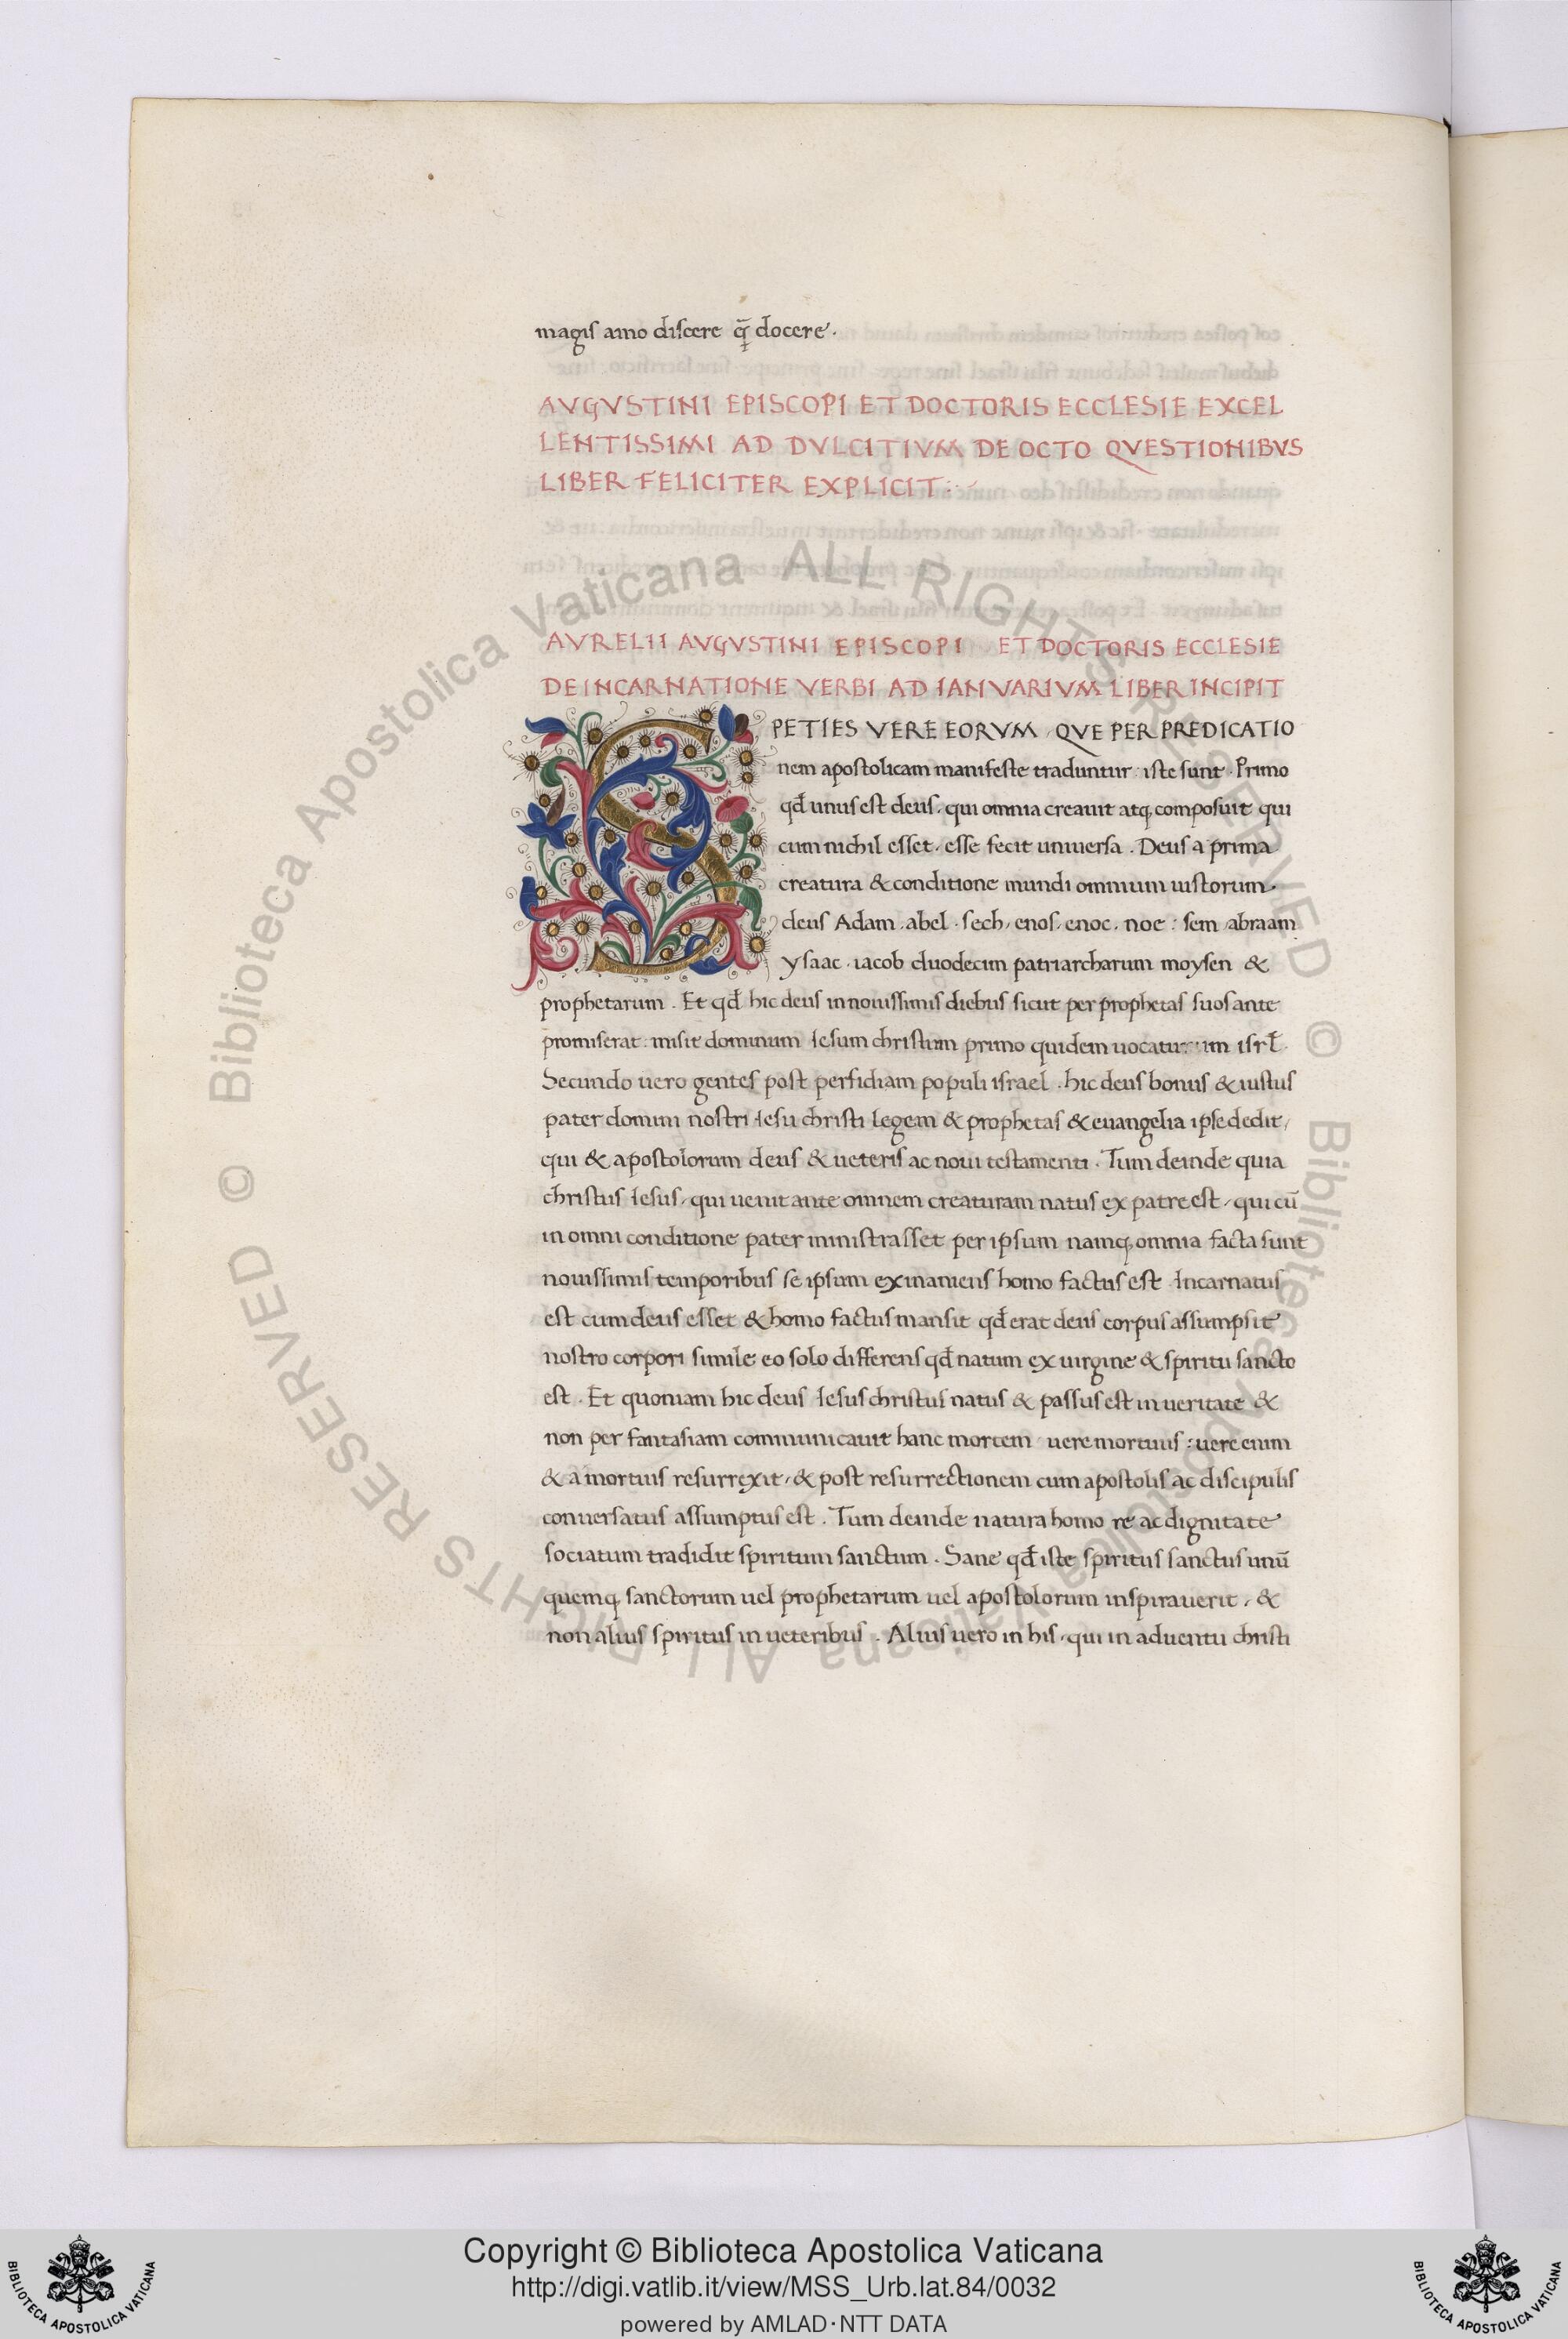 magis amo discere q̄ꝫ docere.
AVGVSTINI EPISCOPI ET DOCTORIS ECCLESIE EXCEL
LENTISSIMI AD DVLCITIVM DE OCTO QVESTIONIBVS
LIBER FELICITER EXPLICIT:
AVRELII AVGVSTINI EPISCOPI ET DOCTORIS ECCLESIE
DE INCARNATIONE VERBI AD IANVARIVM LIBER INCIPIT
SPETIES VERE EORVM QVE PER PREDICATIO
nem apostolicam manifeste traduntur: iste sunt. Primo
qđ unus est deus, qui omnia creauit atq, composuit qui
cum nichil esset, esse fecit uniuersa. Deus a prima
creatura & conditione mundi omnium iustorum,
deus Adam. abel. sech, enos, enoc, noe: sem, abraam
ysaac. iacob duodecim patriarcharum moysen &
prophetarum. Et qđ hic deus in nouissimis diebus sicut per prophetas suos ante
promiserat: misit dominum Iesum christum primo quidem isrł.
Secundo uero gentes post perfidiam populi israel. hic deus bonus & iustus
pater domini nostri Iesu christi legem & prophetas & euangelia ipse dedit,
qui & apostolorum deus & ueteris ac noui testamenti. Tum deinde quia
christus Iesus, qui uenit ante omnem creaturam natus ex patre est, qui cū
in omni conditione pater ministrasset per ipsum namq, omnia facta sunt
nouissimis temporibus se ipsum exinaniens homo factus est Incarnatus
est cum deus esset & homo factus mansit qđ erat deus corpus assumpsit
nostro corpori simile eo solo differens qđ natum ex uirgine & spiritu sancto
est. Et quoniam hic deus Iesus christus natus & passus est in ueritate &
non per fantasiam communicauit hanc mortem uere mortuus: uere enim
& a mortuis resurrexit, & post resurrectionem cum apostolis ac discipulis
conuersatus assumptus est. Tum deinde natura homo re ac dignitate
sociatum tradidit spiritum sanctum. Sane qđ iste spiritus sanctus unū
quemq, sanctorum uel prophetarum uel apostolorum inspirauerit, &
non alius spiritus in ueteribus. Alius uero in his, qui in aduentu christi
© Biblioteca Apostolica Vaticana ALL RIGHTS RESERVED © Biblioteca Apostolica Vaticana ALL RIGHTS RESERVED
Copyright © Biblioteca Apostolica Vaticana
http://digi.vatlib.it/view/MSS_Urb.lat.84/0032
powered by AMLAD·NTT DATA
BIBLIOTECA APOSTOLICA VATICANA
BIBLIOTECA APOSTOLICA VATICANA